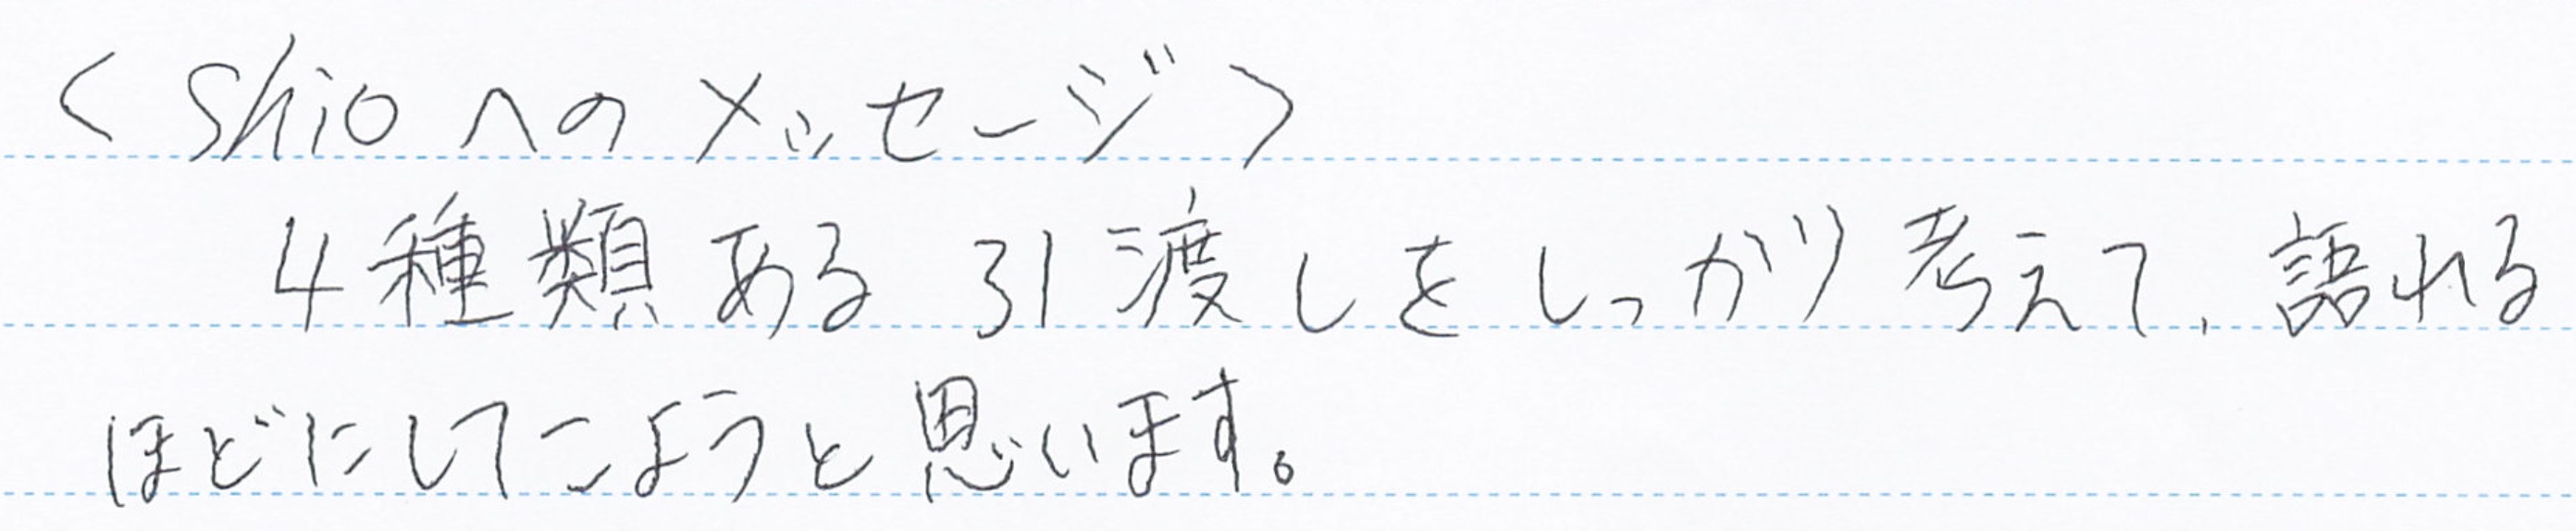 <Shioへのメッセージ>
4種類ある引渡しをしっかり考えて、語れる
ほどにしてこようと思います。